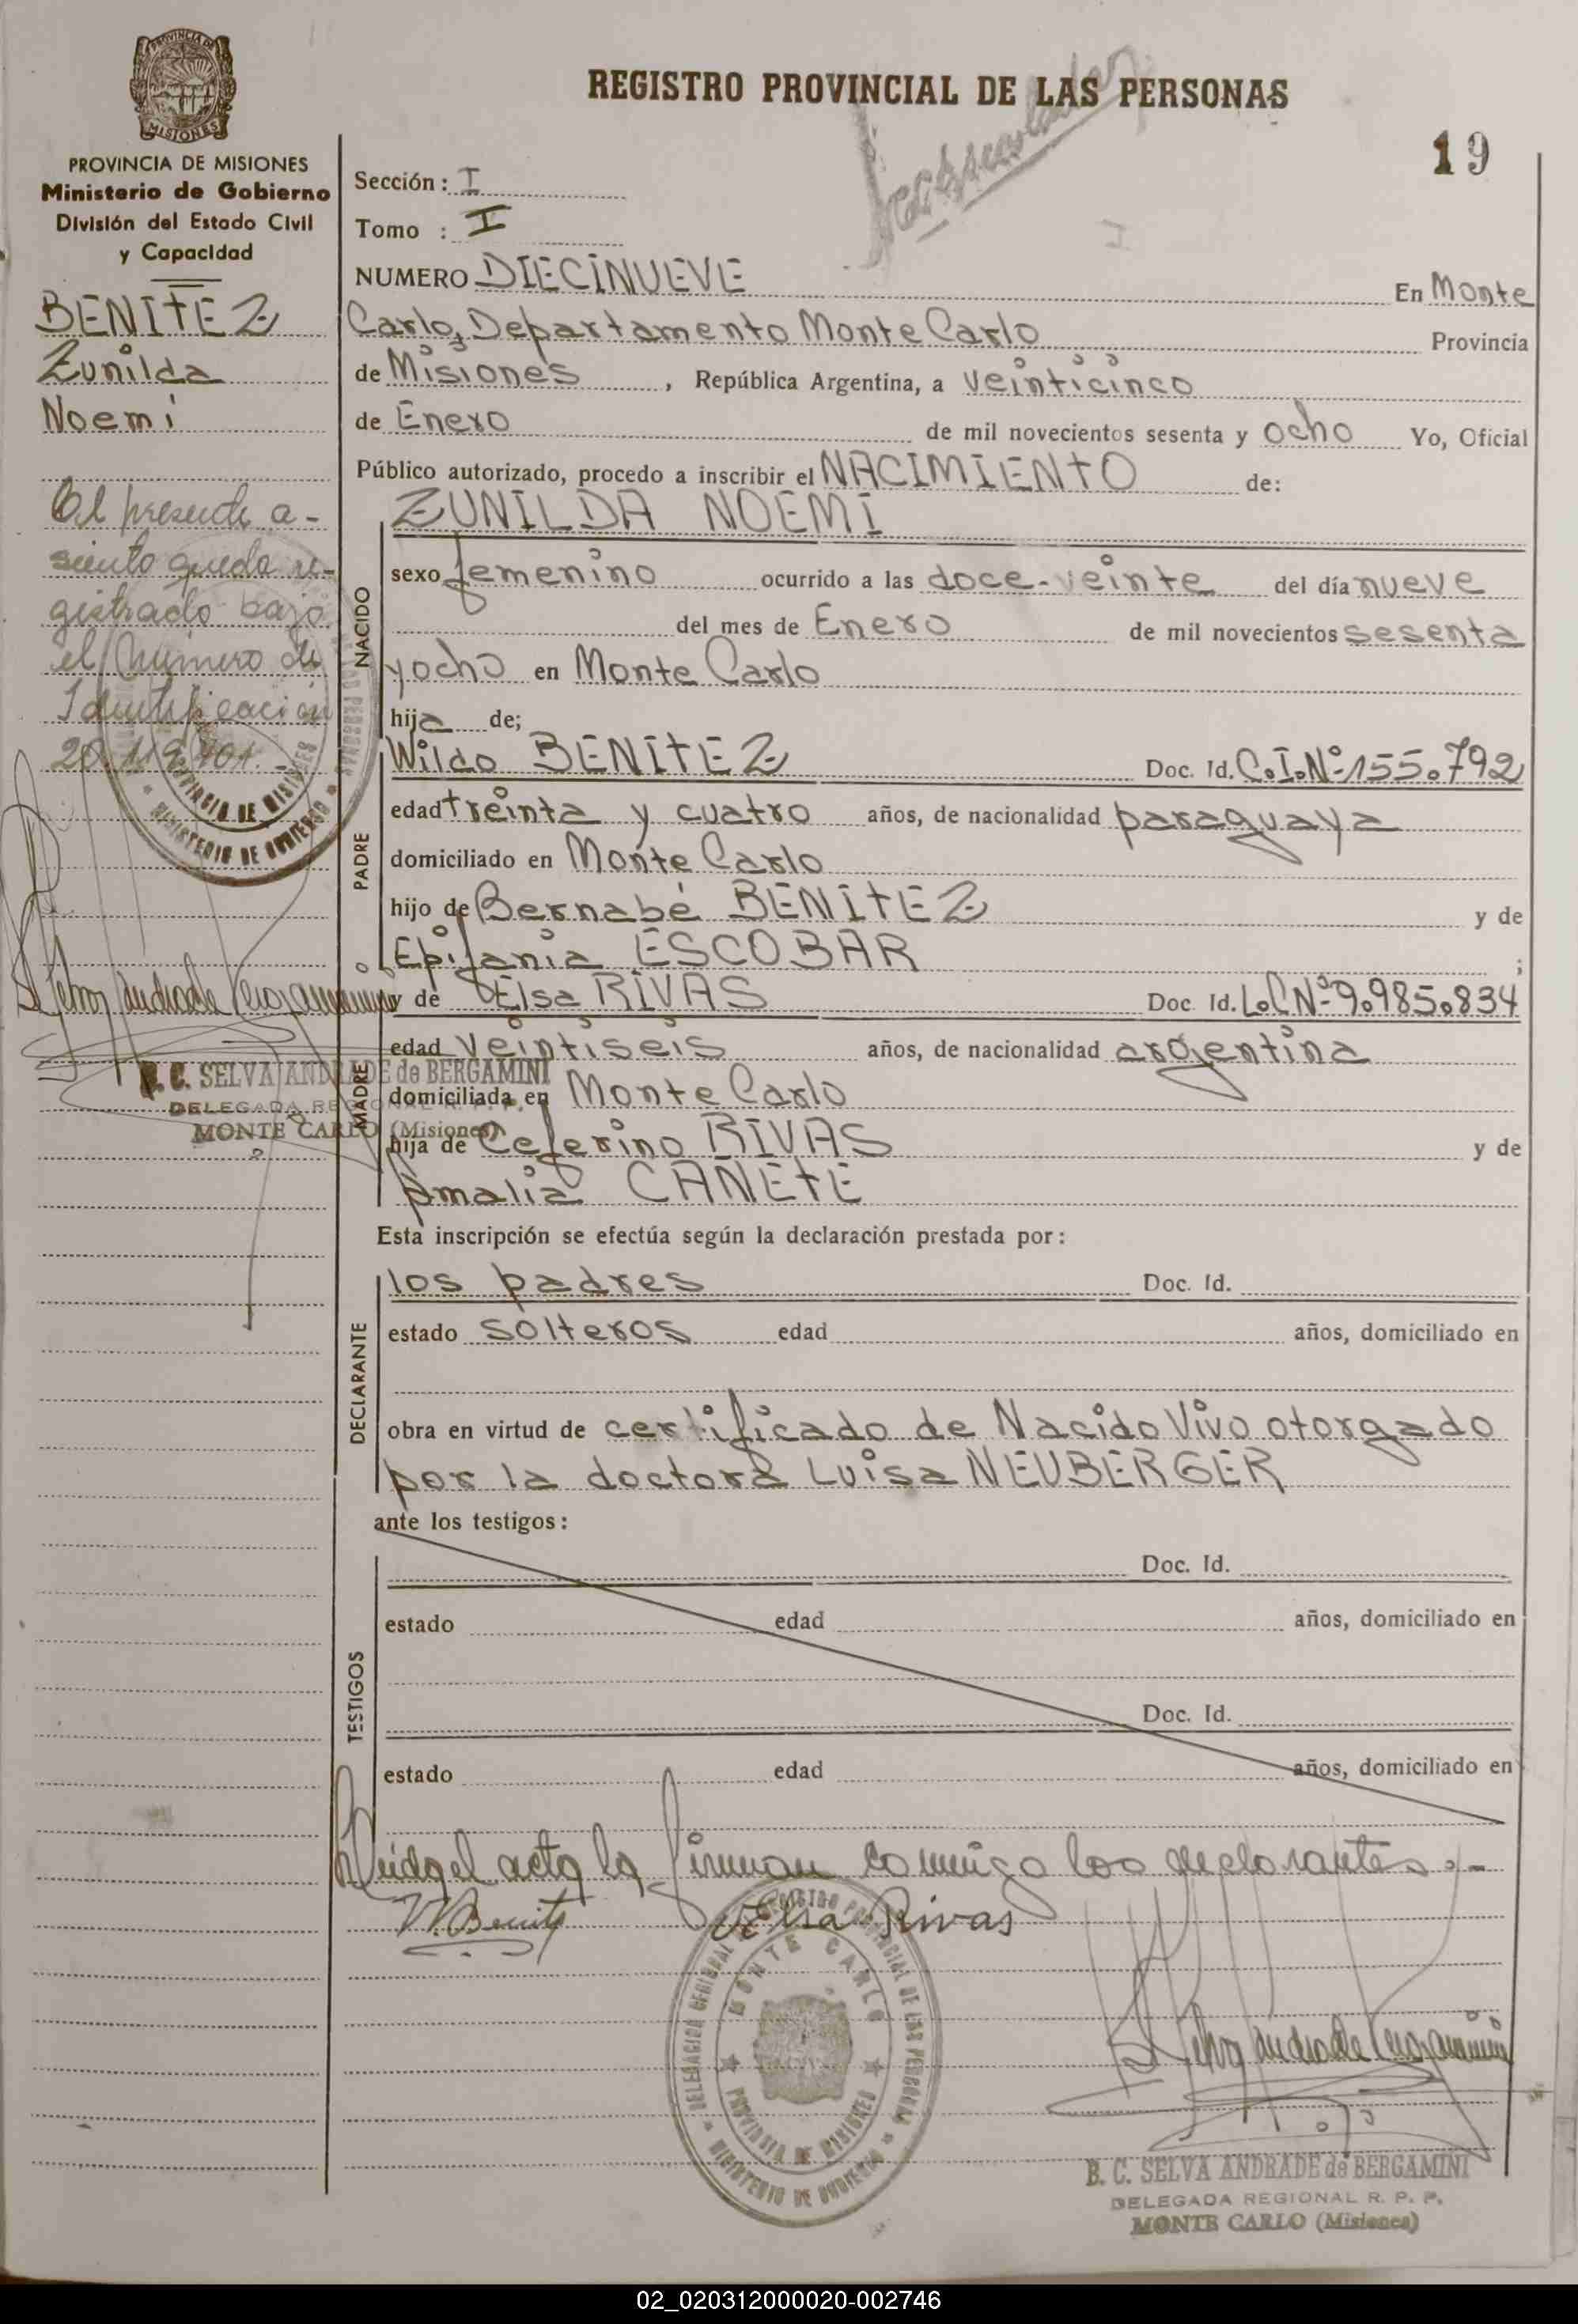 PROVINCIA DE MISIONES
REGISTRO PROVINCIAL DE LAS PERSONAS
19
PROVINCIA DE MISIONES
Ministerio de Gobierno
División del Estado Civil
y Capacidad
BENITEZ
Zunilda
Noemi
El presente a-
siento queda re-
gistrado bajo
el Número de
Identificación
S. C. SELVA ANDRADE de BERGAMINI
DELEGADA REGIONAL R. P. P.
MONTE CARLO (Misiones)
Sección: I
Tomo : I
NUMERO DIECINUEVE En Monte
Carlo, Departamento Monte Carlo Provincia
de Misiones, República Argentina, a veinticinco
de Enero de mil novecientos sesenta y ocho Yo, Oficial
Público autorizado, procedo a inscribir el NACIMIENTO de:
NACIDO
ZUNILDA NOEMI
sexo femenino ocurrido a las doce-veinte del día nueve
del mes de Enero de mil novecientos sesenta
y ocho en Monte Carlo
hija de;
PADRE
Wildo BENITEZ Doc. Id. C.I.Nº155.792
edad treinta y cuatro años, de nacionalidad paraguaya
domiciliado en Monte Carlo
hijo de Bernabé BENITEZ y de
Epifania ESCOBAR ;
MADRE
y de Elsa RIVAS Doc. Id. L.C Nº9.985.834
edad veintiseis años, de nacionalidad argentina
domiciliada en Monte Carlo
hija de Ceferino RIVAS y de
Amalia CAÑETE
Esta inscripción se efectúa según la declaración prestada por:
DECLARANTE
los padres Doc. Id.
estado solteros edad años, domiciliado en
obra en virtud de certificado de Nacido Vivo otorgado
por la doctora Luisa NEUBERGER
ante los testigos:
TESTIGOS
Doc. Id.
estado edad años, domiciliado en
Doc. Id.
estado edad años, domiciliado en
Leida el acta la firman conmigo los declarantes.-
W. Benitez Elsa Rivas
DELEGACION REGIONAL REGISTRO PROVINCIAL DE LAS PERSONAS
MONTE CARLO
PROVINCIA DE MISIONES
MINISTERIO DE GOBIERNO
B. C. SELVA ANDRADE de BERGAMINI
DELEGADA REGIONAL R. P. P.
MONTE CARLO (Misiones)
02_020312000020-002746